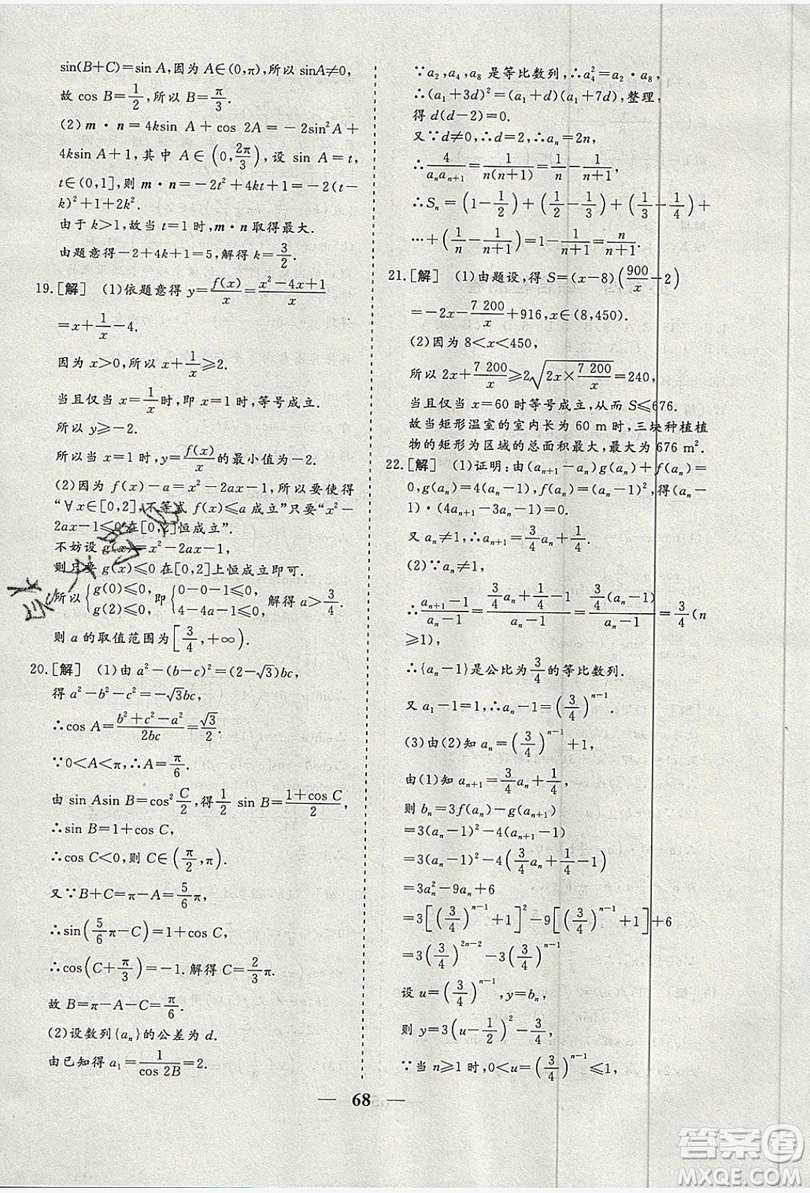 sin(B+C)=sin A,因为 A∈(0,π),所以 sinA≠0,
故 cos B=1/2,所以 B=π/3.
(2)m·n=4ksin A+cos 2A=−2sin²A+
4ksin A+1,其中 A∈(0,2π/3),设 sin A=t,
t∈(0,1],则 m·n=−2t²+4kt+1=−2(t−
k)²+1+2k².
由于 k>1,故当 t=1 时,m·n 取得最大.
由题意得−2+4k+1=5,解得 k=3/2.
19.[解] (1)依题意得 y=f(x)/x=(x²−4x+1)/x
=x+1/x−4.
因为 x>0,所以 x+1/x≥2.
当且仅当 x=1/x时,即 x=1 时,等号成立.
所以 y≥−2.
所以当 x=1 时,y=f(x)/x 的最小值为−2.
(2)因为 f(x)−a=x²−2ax−1,所以要使得
“∀x∈[0,2],不等式 f(x)≤a 成立”只要“x²−
2ax−1≤0 在[0,2]恒成立”.
不妨设 g(x)=x²−2ax−1,
则只要 g(x)≤0 在[0,2]恒成立即可.
所以{g(0)≤0, g(2)≤0, 即{0−0−1≤0, 4−4a−1≤0, 解得 a>3/4.
则 a 的取值范围为[3/4,+∞).
20.[解] (1)由 a²−(b−c)²=(2−√3)bc,
得 a²−b²−c²=−√3bc,
∴cos A=(b²+c²−a²)/2bc=√3/2.
∵0<A<π,∴A=π/6.
由 sin Asin B=cos² C/2,得 1/2 sin B=(1+cos C)/2,
∴sin B=1+cos C.
∴cos C<0,则 C∈(π/2,π).
又∵B+C=π−A=5π/6,
∴sin(5/6π−C)=1+cos C,
∴cos(C+π/3)=−1.解得 C=2/3π.
故 B=π−A−C=π/6.
(2)设数列{aₙ}的公差为 d.
由已知得 a₁=1/cos 2B=2.
∵a₂,a₄,a₈ 是等比数列,∴a₄²=a₂·a₈,
∴(a₁+3d)²=(a₁+d)(a₁+7d),整理,
得 d(d−2)=0.
又∵d≠0,∴d=2,∴aₙ=2n,
∴4/(aₙaₙ₊₁)=1/(n(n+1))=1/n−1/(n+1).
∴Sₙ=(1−1/2)+(1/2−1/3)+(1/3−1/4)+
⋯+(1/n−1/(n+1))=1−1/(n+1)=n/(n+1).
21.[解] (1)由题设,得 S=(x−8)(900/x−2)
=−2x−7 200/x+916,x∈(8,450).
(2)因为 8<x<450,
所以 2x+7 200/x≥2√(2x×7 200/x)=240,
当且仅当 x=60 时等号成立,从而 S≤676.
故当矩形温室的室内长为 60 m 时,三块种植植
物的矩形为区域的总面积最大,最大为 676 m².
22.[解] (1)证明:由(aₙ₊₁−aₙ)g(aₙ)+f(aₙ)=
0,g(aₙ)=4(aₙ−1),f(aₙ)=(aₙ−1)²,得(aₙ−
1)·(4aₙ₊₁−3aₙ−1)=0.
又 aₙ≠1,∴aₙ₊₁=3/4aₙ+1/4.
(2)∵aₙ≠1,
∴(aₙ₊₁−1)/(aₙ−1)=(3/4aₙ+1/4−1)/(aₙ−1)=(3/4aₙ−3/4)/(aₙ−1)=3/4(n
≥1),
∴{aₙ−1}是公比为3/4的等比数列.
又 a₁−1=1,∴aₙ−1=(3/4)ⁿ⁻¹.
(3)由(2)知 aₙ=(3/4)ⁿ⁻¹+1,
由(1)知 aₙ₊₁=3/4aₙ+1/4,
则 bₙ=3f(aₙ)−g(aₙ₊₁)
=3(aₙ−1)²−4(aₙ₊₁−1)
=3(aₙ−1)²−4(3/4aₙ+1/4−1)
=3aₙ²−9aₙ+6
=3[(3/4)ⁿ⁻¹+1]²−9[(3/4)ⁿ⁻¹+1]+6
=3(3/4)²ⁿ⁻²−3(3/4)ⁿ⁻¹.
设 u=(3/4)ⁿ⁻¹,y=bₙ,
则 y=3(u−1/2)²−3/4.
∵当 n≥1 时,0<u=(3/4)ⁿ⁻¹≤1,
— 68 —
答案圈
MXQE.COM